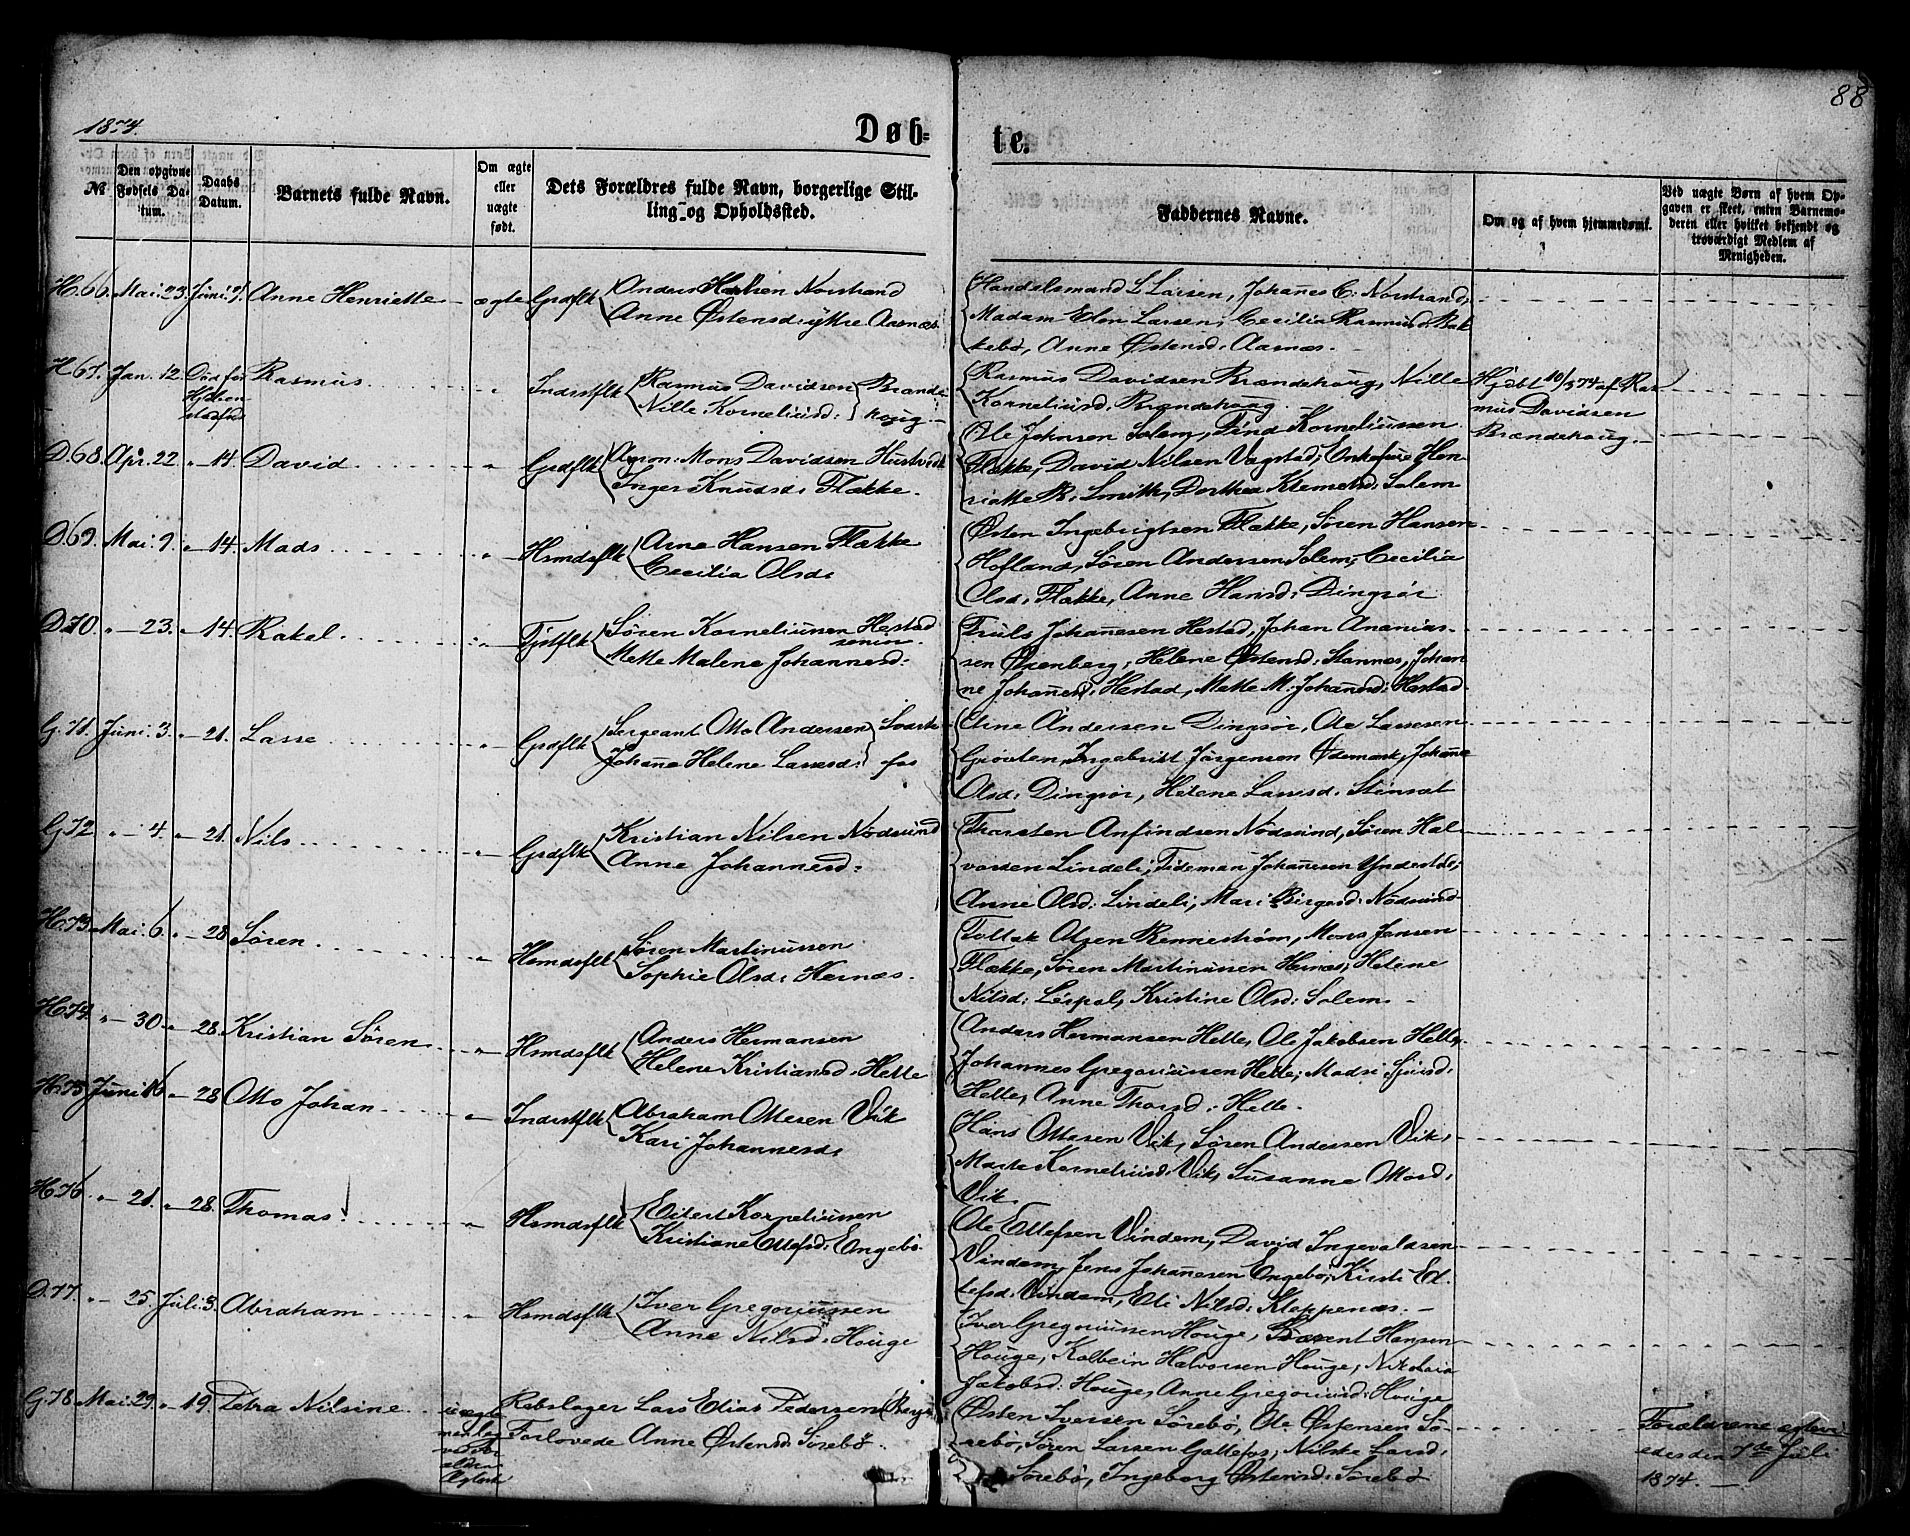 88
1874.
Døb-
te.
№
Den opgivne Fødsels Datum.
Daabs Datum.
Barnets fulde Navn.
Om ægte eller uægte født.
Dets Forældres fulde Navn, borgerlige Stilling og Opholdssted.
Faddernes Navne.
Om og af hvem hjemmedøbt.
Ved uægte Børn af hvem Opgaven er skeet, enten Barnemoderen eller hvilket bekjendt og troværdigt Medlem af Menigheden.
H. 66. Mai 23. Juni 7. Anne Henriette ægte Grdflk Anders Nordstrand
Anne Østensd: yttre Aasnæs
Handelsmand L Larsen, Johanes C: Nordstrand,
Madam Elen Larsen, Cecilia Rasmusd: Bak-
kebø, Anne Østensd: Aasnæs.
H. 67. Jan. 12. Rasmus " Inderstflk Rasmus Davidsen Brænde-
Nille Korneliusd: houg
Rasmus Davidsen Brændehoug, Nille
Korneliusd: Brændehoug
Hjdbt 10/3 74 af Ras-
mus Davidsen
Brændehoug.
D. 68. Apr. 22 " 14. David " Grdflk Agron. Mons Davidsen
Inger Knudsd: Flække.
Ole Johnsen Solem, Korneliussen
Flække, David Nilsen Vagstad, Enkefrue Hen-
riette B. Smith, Dorthea Klemetsd: Solem
D. 69. Mai 9. " 14. Mads " Hsmdsflk Arne Hansen Flække
Cecilia Olsd:
Østen Ingebrigtsen Flække, Søren Hansen
Hofland, Søren Andersen Solem, Cecilia
Olsd: Flække, Anne Hansd: Dingsør
D. 70. " 23. " 14. Rakel " Søren Korneliussen Hestad
Mette Malene Johannesd:
Truls Johanesen Hestad, Johan Ananias-
sen Øxenberg, Helene Østensd: Stannes, Johan-
ne Johanesd: Hestad, Mette M. Johanesd: Hestad
G. 71. Juni 3. " 21. Lasse " Grdflk Sergeant Otto Andersen Svarte-
Johane Helene Lassesd: fos
Eline Andersen Dingsør, Ole Lassesen
Ingebrikt Jørgensen Ødemark, Johane
Olsd: Dingsør, Helene Lassesd: Stinsæt
G. 72 " 4. " 21. Nils " Grdflk Kristian Nilsen Nødsund
Anne Johannesd:
Thorsten Anfindsen Nødsund, Søren Hal-
vorsen Lindeli, Tideman Johanesen Yndestad,
Anne Olsd: Lindeli, Mari Nødsund
H. 73. Mai 6. " 28 Søren " Hsmdsflk Søren Martinussen
Sophie Olsd: Hernæs.
Tollak Olsen Rennestrøm, Mons Jansen
Flække, Søren Martinussen Hernæs, Helene
Nilsd: Kristine Olsd: Solem
H. 74. " 30. " 28. Kristian Søren " Hsmdsflk Anders Hermansen
Helene Kristiansd: Helle
Anders Hermansen Helle, Ole Jakobsen Helle,
Johannes Gregoriussen Helle, Madsi
Helle, Anne Thorsd: Helle.
H. 75. Juni 16 " 28 Otto Johan " Inderstflk Abraham Ottesen Vik
Kari Johannesd:
Hans Ottesen Vik, Søren Andersen Vik,
Marte Korneliusd: Vik, Susanne
Vik
H. 76. " 21. " 28. Thomas " Hsmdsflk Eilert Korneliussen
Kristiane Ellefsd: Engebø.
Ole Ellefsen Vindem, David Ingevaldsen
Vindem, Jens Johanesen Engebø, Kirsti El-
lefsd: Vindem, Eli Nilsd: Kloppenæs.
D. 77. " 25. Juli 3. Abraham " Hsmdsflk Iver Gregoriussen
Anne Nilsd: Houge
Iver Gregoriussen Houge, Hansen
Houge, Kolbein Halvorsen Houge, Nikolaia
Jakobsd: Houge, Anne Gregoriusd: Houge
G. 78 Mai 29. " 19. Petra Nilsine uægte Rebslager Lars Elias Pedersen
Forlovede Anne Østensd: Sørebø.
Østen Iversen Sørebø, Ole Østensen Sø-
rebø, Søren Larsen Larsd:
Sørebø, Ingeborg Østensd: Sørebø
Forældrene
den 7de Juli
1874.